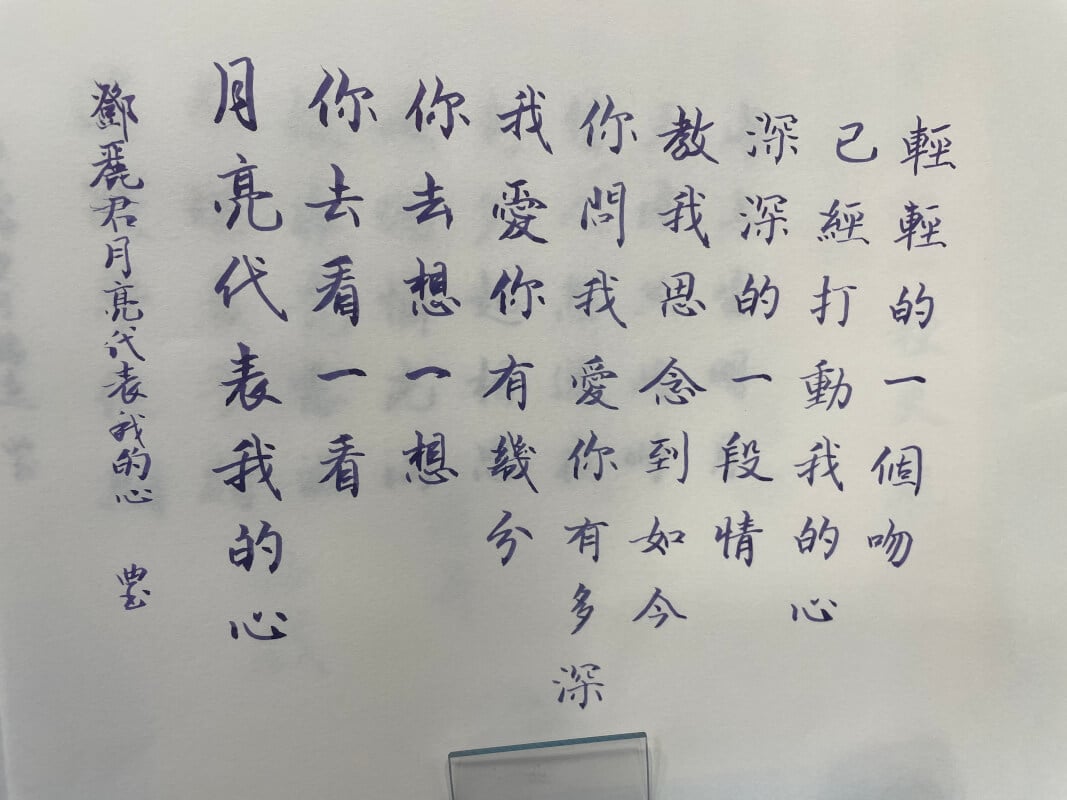 輕輕的一個吻
已經打動我的心
深深的一段情
教我思念到如今
你問我愛你有多深
我愛你有幾分
你去想一想
你去看一看
月亮代表我的心
鄧麗君月亮代表我的心